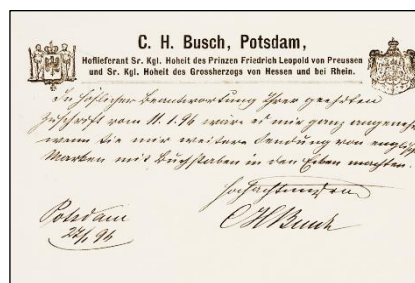 C. H. Busch, Potsdam,
Hoflieferant Sr. Kgl. Hoheit des Prinzen Friedrich Leopold von Preussen
und Sr. Kgl. Hoheit des Grossherzogs von Hessen und bei Rhein.
In höflicher Beantwortung Ihrer geehrten
Zuschrift vom 11.1.96 wäre es mir ganz angenehm
wenn Sie mir weitere Sendung von englisch
Marken mit Buchstaben in den Ecken machten.
Hochachtungsvoll
Potsdam
C H Busch